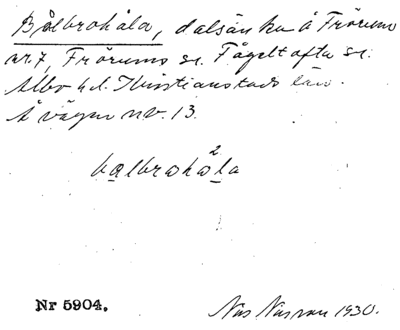 Bålbrohåla, dalsänka å Frörum
nr. 7, Frörums se. Fågeltofta se.
Albo hd. Kristianstads län.
Å vägen nv. 13.
balbrohå²la
Nr 5904.
1930.